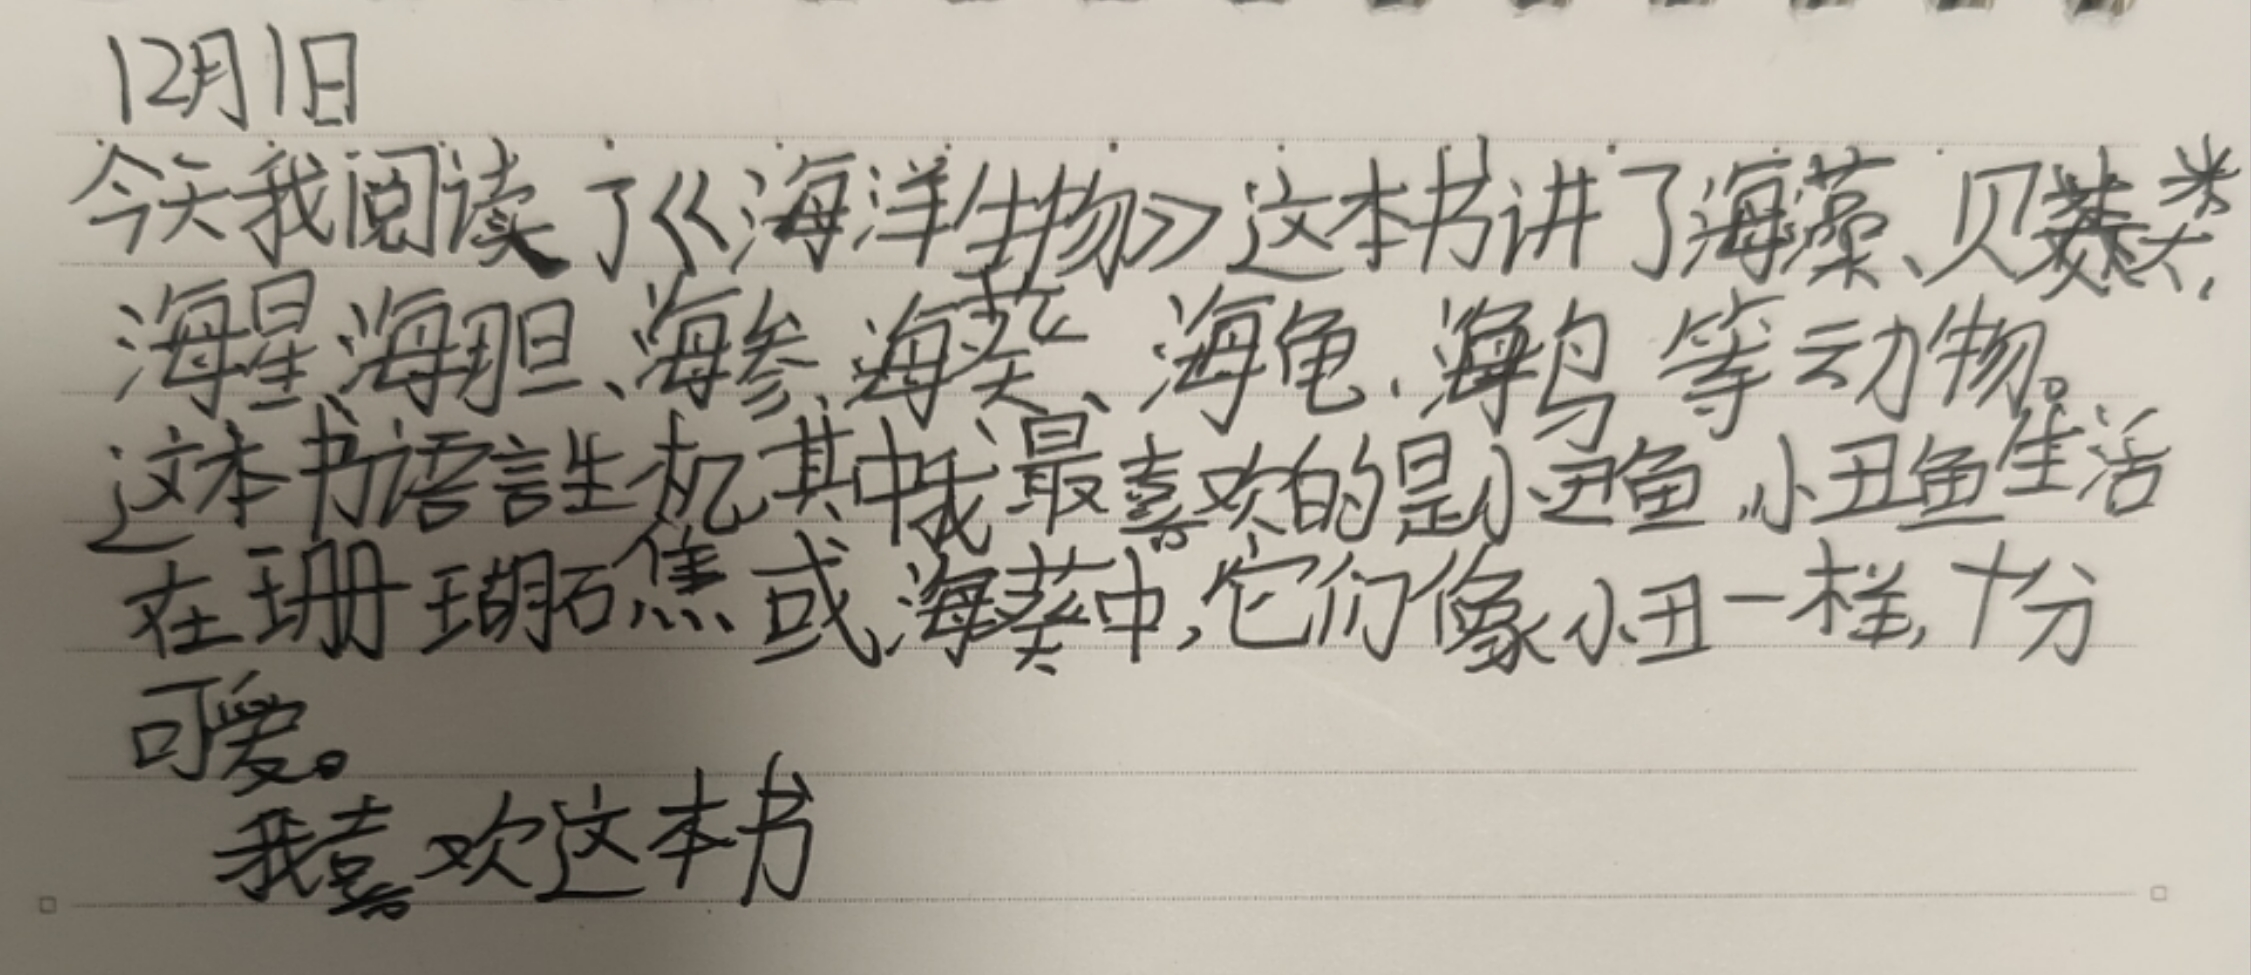 12月1日
今天我阅读了《海洋生物》这本书讲了海藻、贝类,
海星、海胆、海参、海葵、海龟、海鸟等动物。
这本书语言生机其中我最喜欢的是小丑鱼,小丑鱼生活
在珊瑚礁或海葵中,它们像小丑一样,十分
可爱。
我喜欢这本书